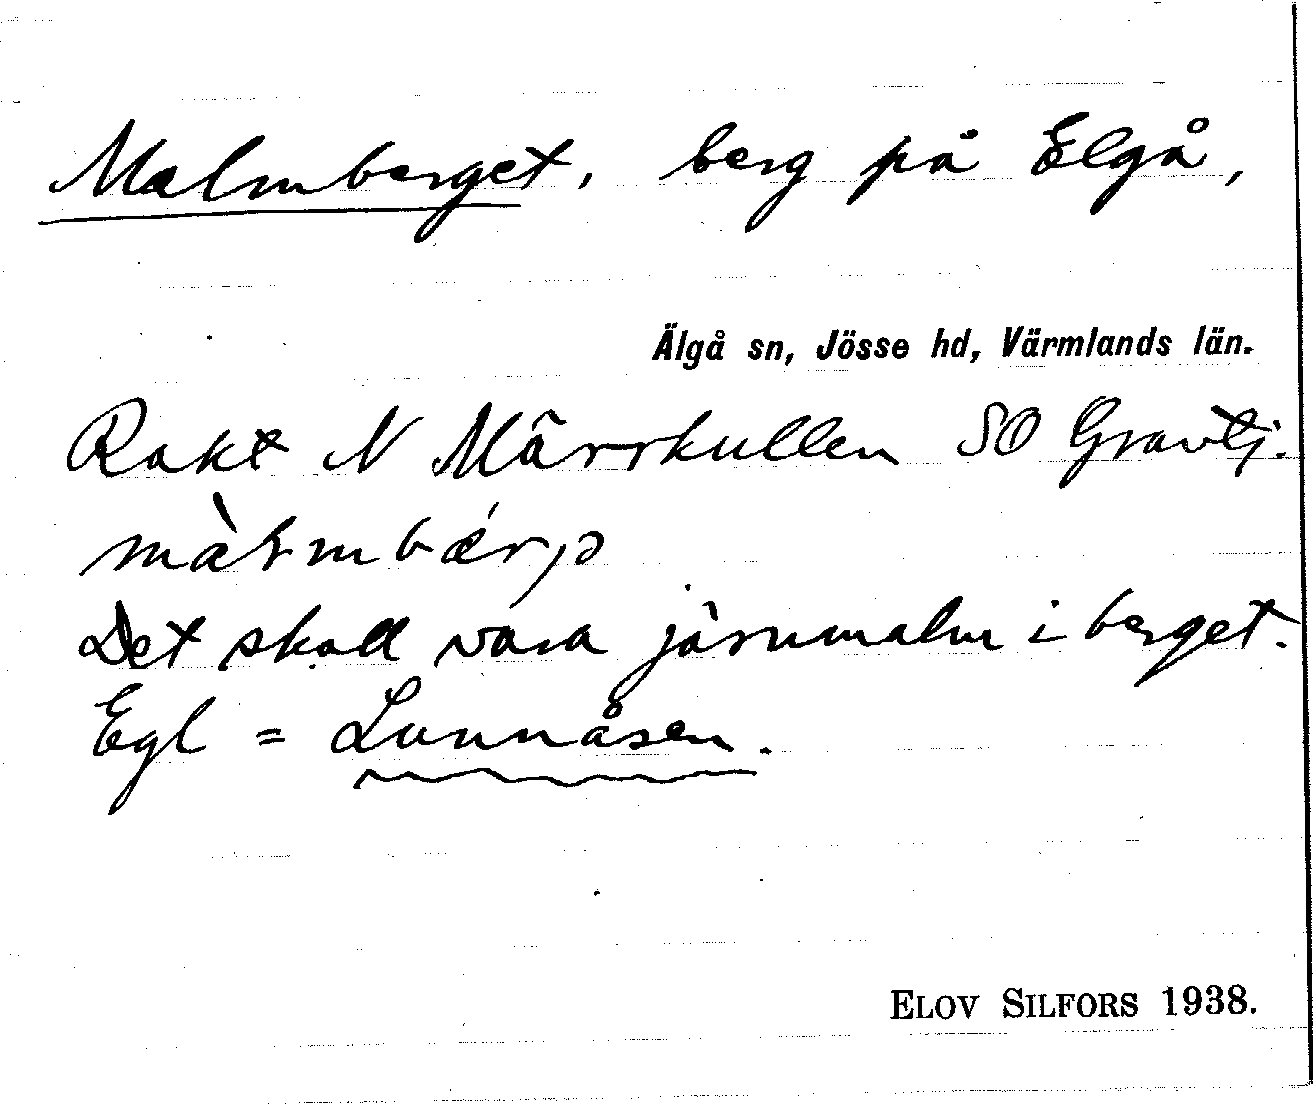 Malmberget, berg på Elgå,
Älgå sn, Jösse hd, Värmlands län.
Rakt N Mårrkullen SO Gravtj.
Det skall vara järnmalm i berget.
Egl = Lunnåsen.
ELOV SILFORS 1938.